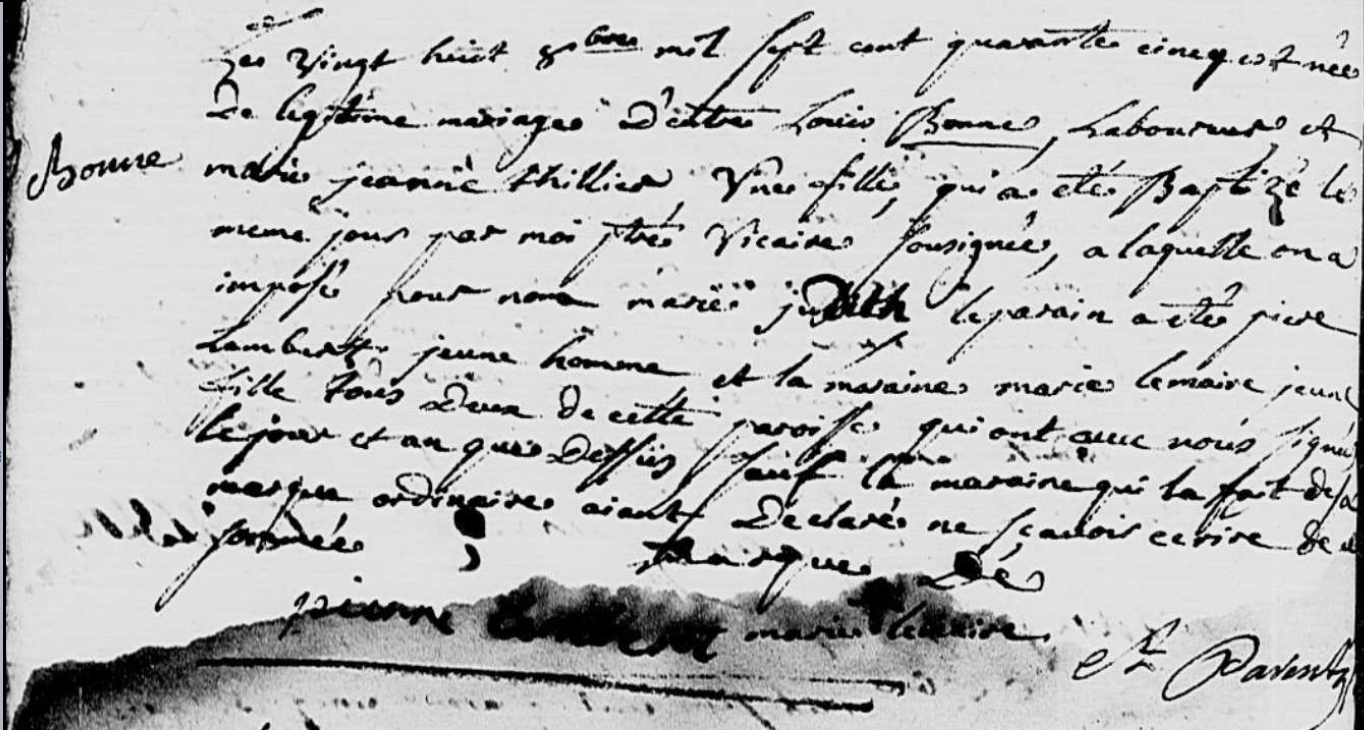 Le vingt huit 8bre mil sept cent quarante cincq est née
De legitime mariage D'entre Louis Bonne, Laboureur et
Bonne
marie jeanne thillier, Une fille, qui a eté Baptizé le
meme jour par moi ptre Vicaire sousigné, a laquelle on a
imposé pour nom marie judith le parain a eté piere
Lambert jeune homme et la maraine marie lemaire jeune
fille tous Deux de cette paroisse qui ont avec nous signé
le jour et an que Dessus sauf la maraine qui la fait de sa
marque ordinaire aiant Declaré ne sçavoir ecrire de ce
sommée marque De
pierre Lambert marie lemaire
Parent